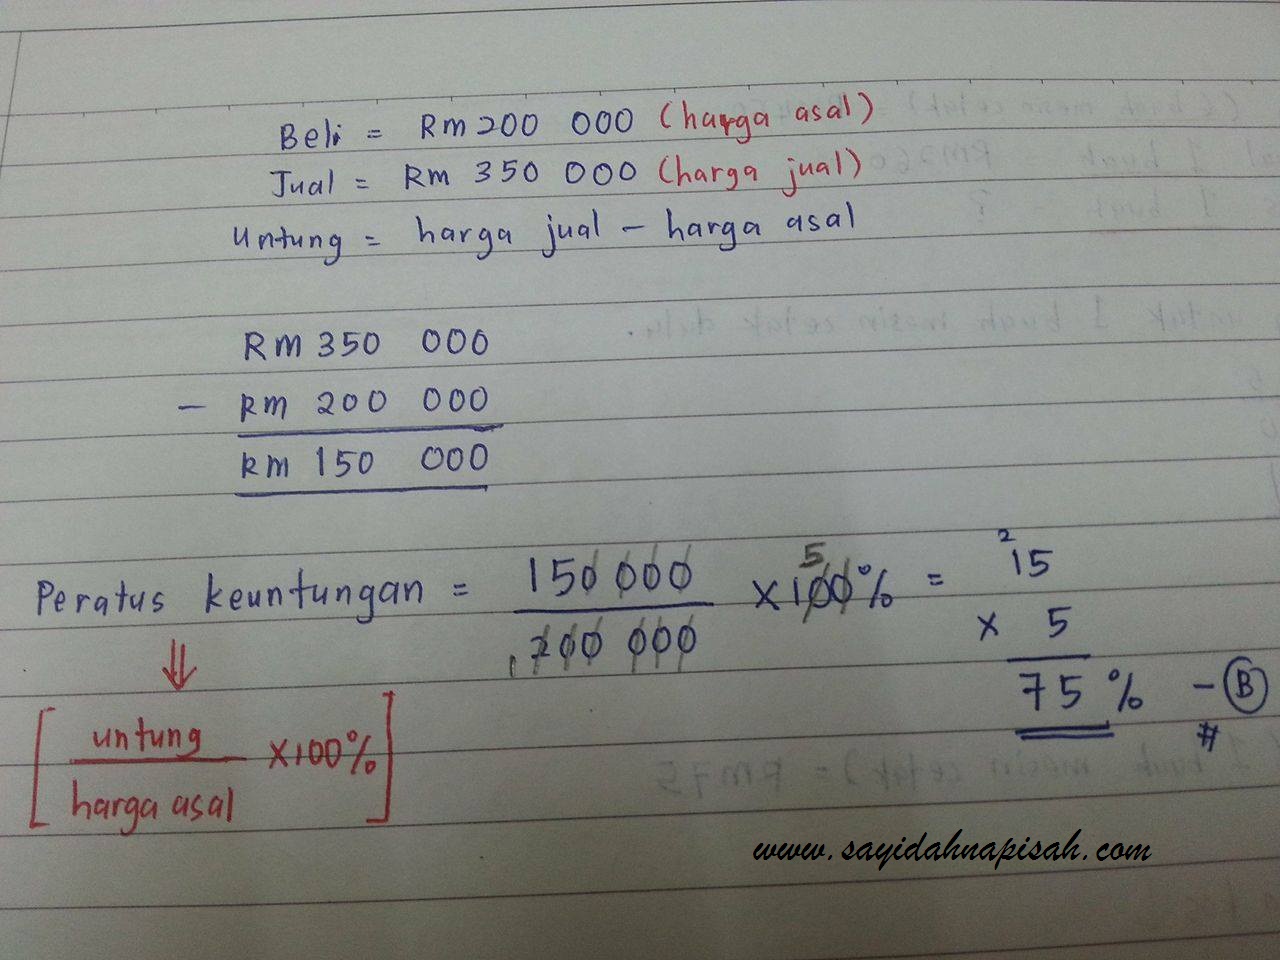 Beli = Rm 200 000 (harga asal)
Jual = Rm 350 000 (harga jual)
Untung = harga jual – harga asal
Rm 350 000
– Rm 200 000
Rm 150 000
5 2
Peratus keuntungan = 150 000 × 100% = 15
1 200 000 × 5
75 % – B
#
[ untung × 100% ]
harga asal
www.sayidahnapisah.com